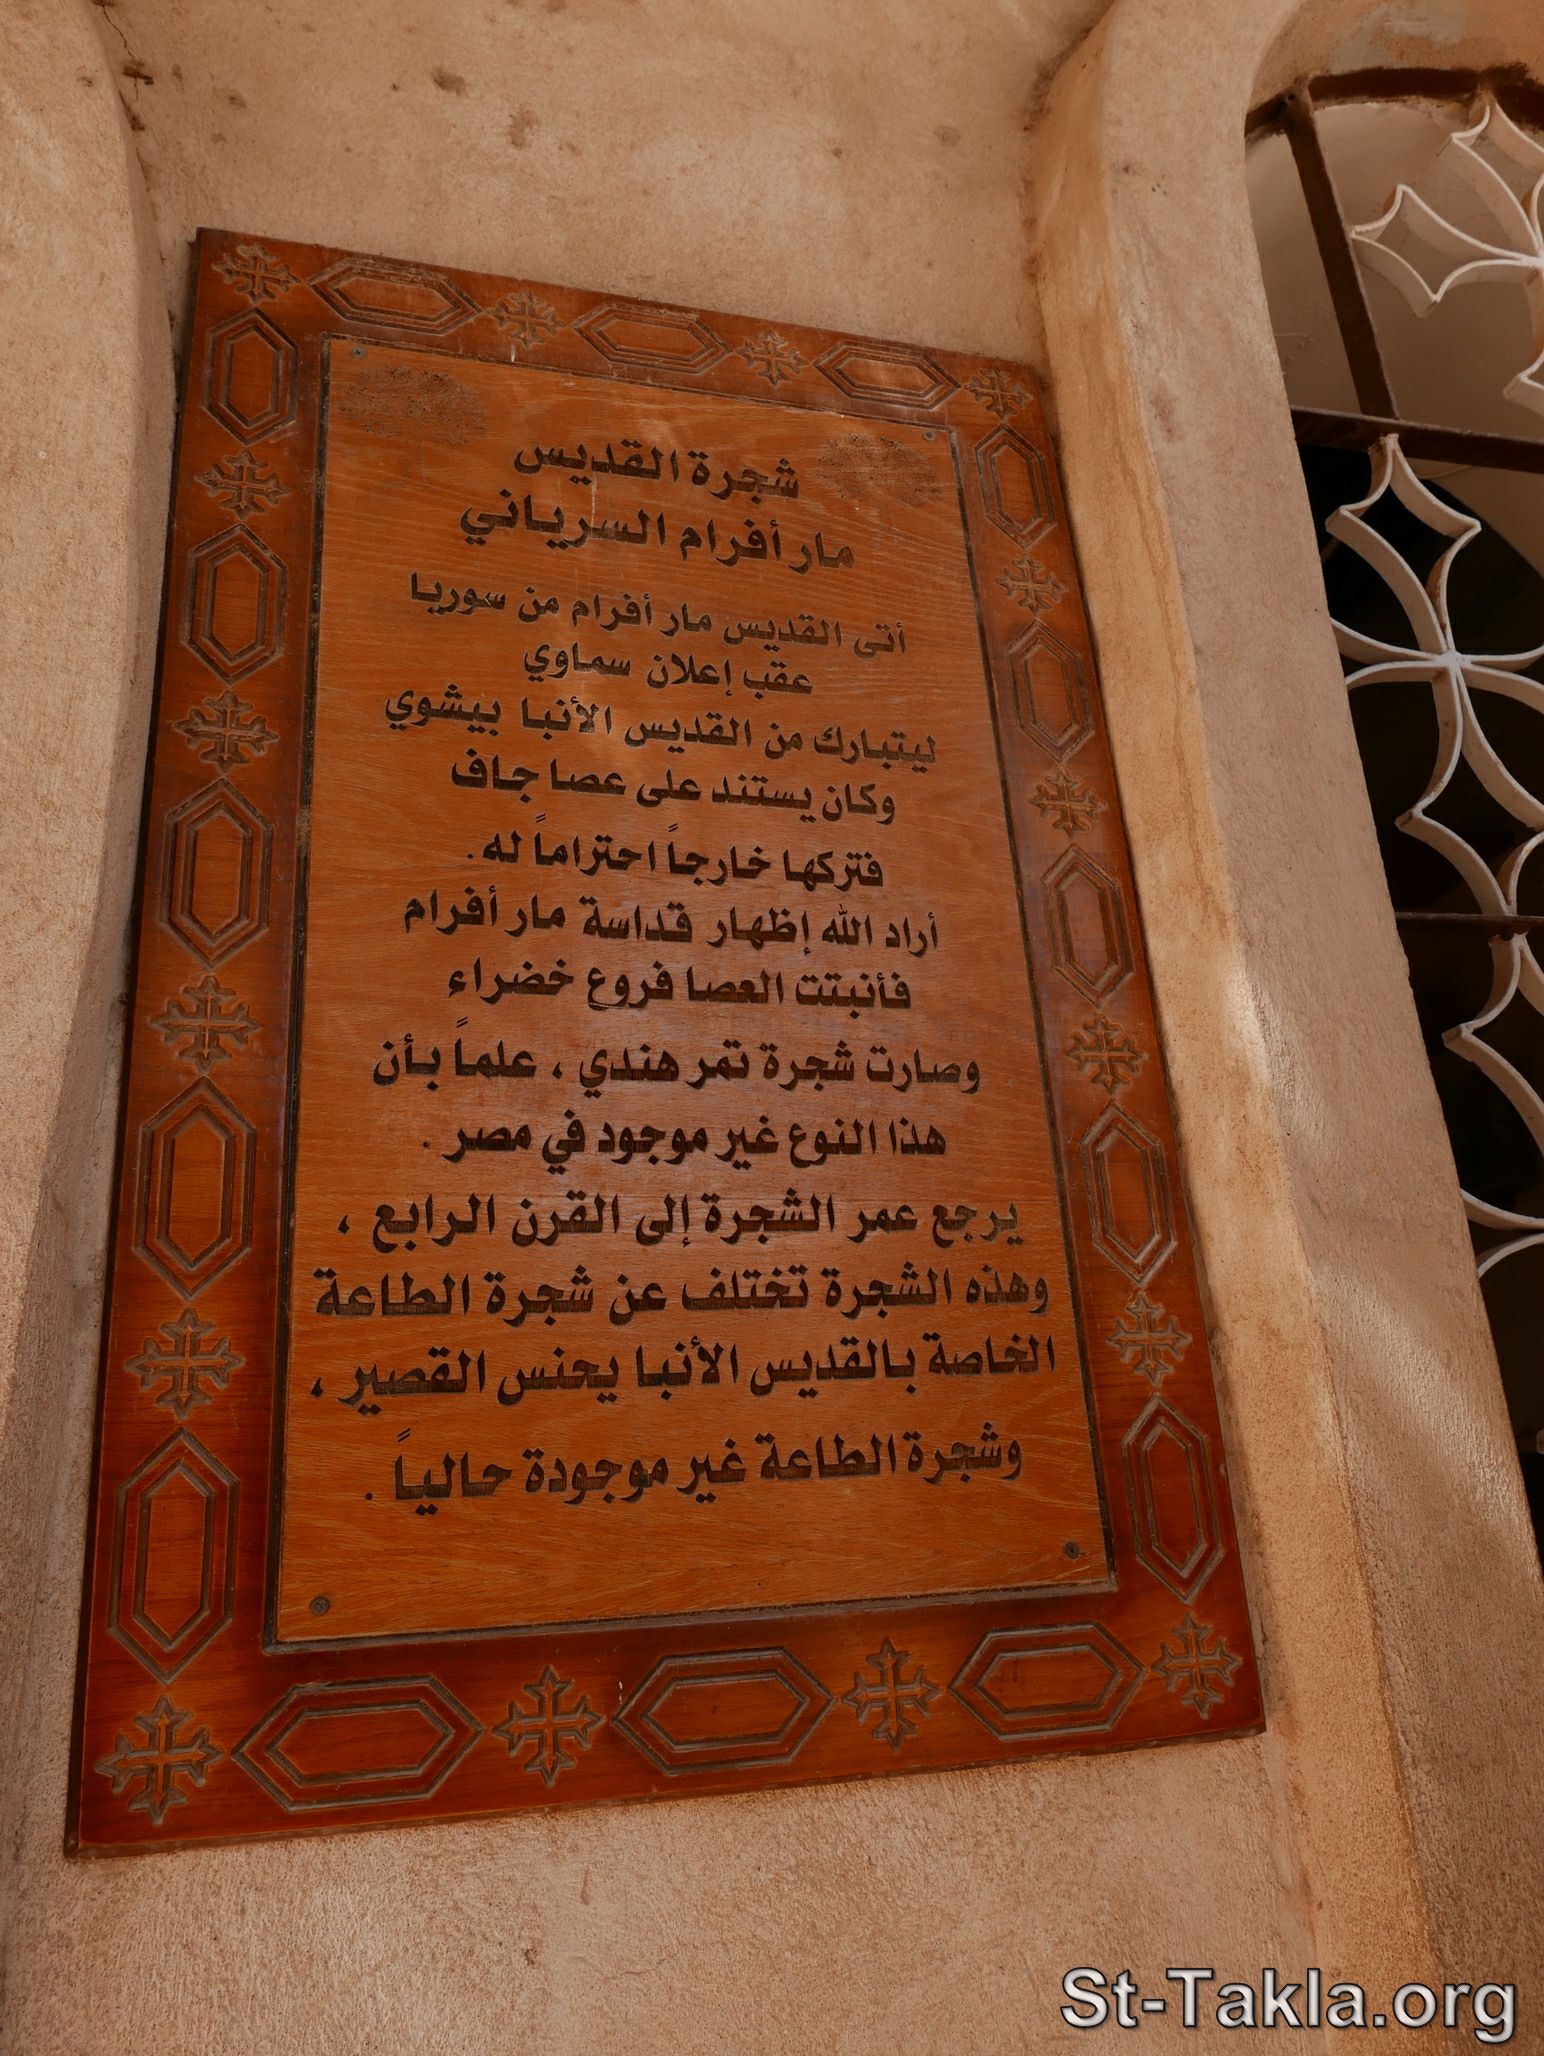 شجرة القديس
مار أفرام السرياني
أتى القديس مار أفرام من سوريا
عقب إعلان سماوي
ليتبارك من القديس الأنبا بيشوي
وكان يستند على عصا جاف
فتركها خارجاً احتراماً له .
أراد الله إظهار قداسة مار أفرام
فأنبتت العصا فروع خضراء
وصارت شجرة تمر هندي ، علماً بأن
هذا النوع غير موجود في مصر .
يرجع عمر الشجرة إلى القرن الرابع ،
وهذه الشجرة تختلف عن شجرة الطاعة
الخاصة بالقديس الأنبا يحنس القصير ،
وشجرة الطاعة غير موجودة حالياً .
St-Takla.org